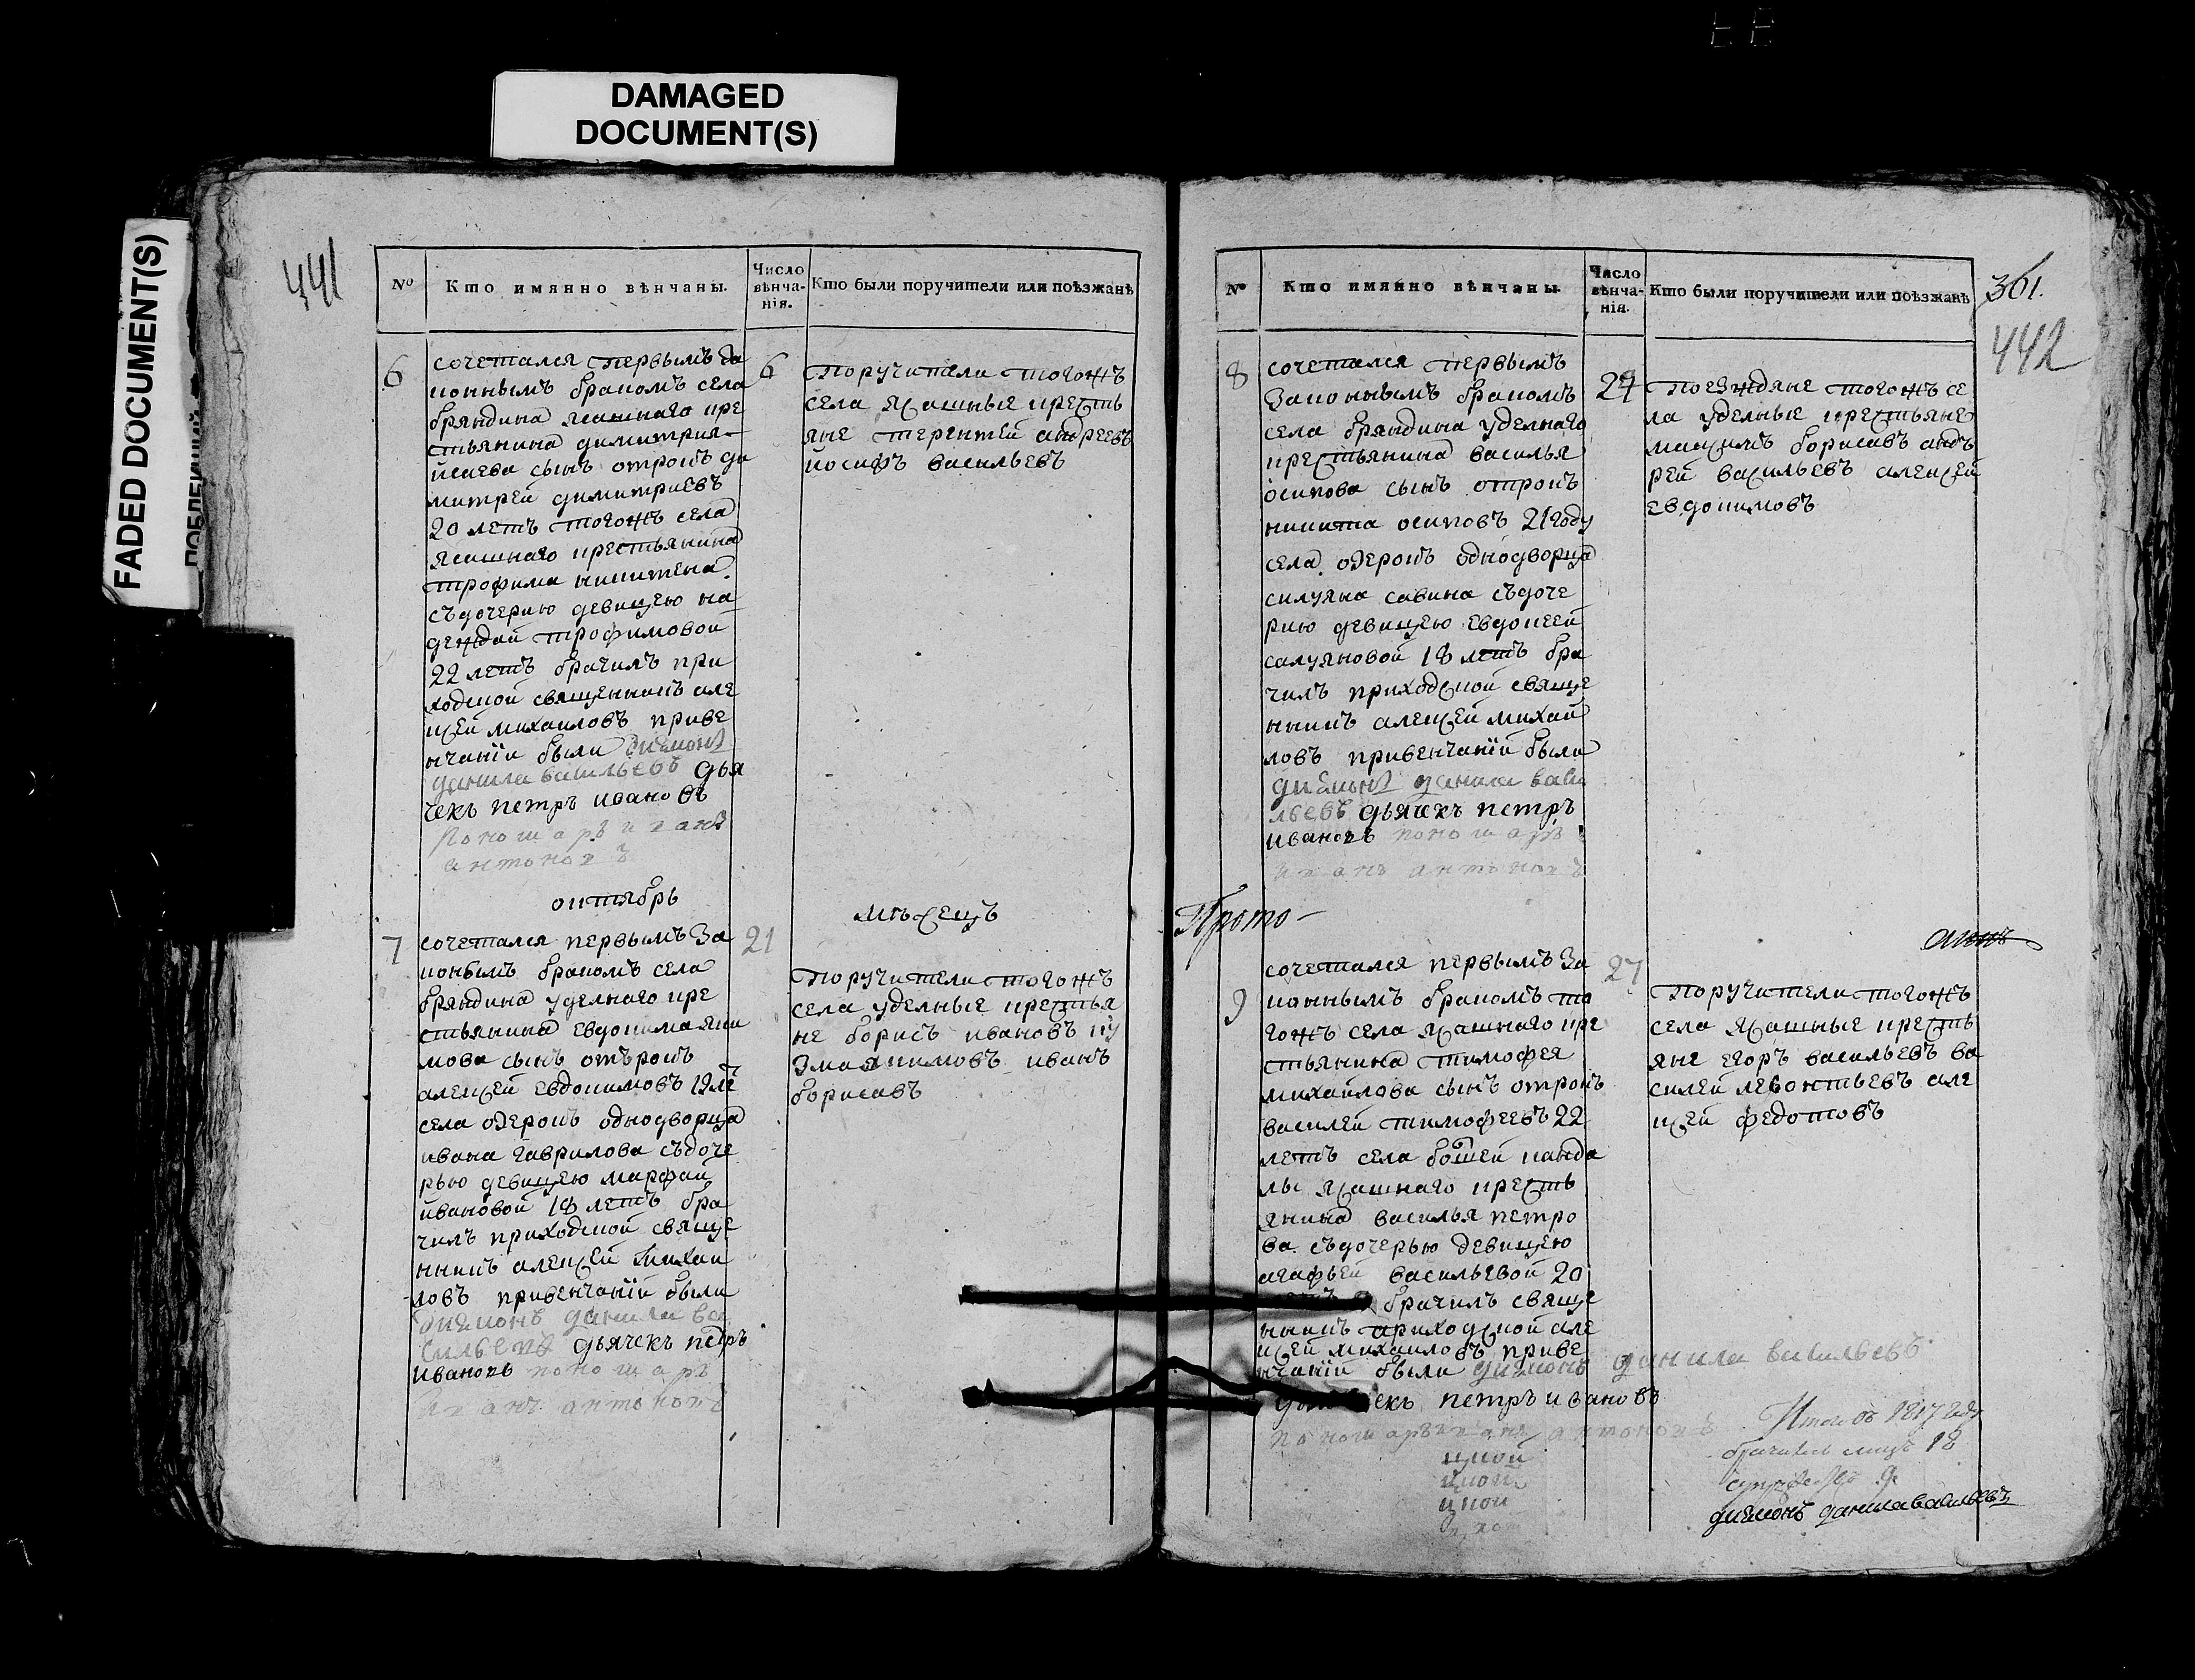 DAMAGED
DOCUMENT(S)
FADED DOCUMENT(S)
441
№
Кто имянно вѣнчаны.
Число
вѣнча-
нія.
Кто были поручители или поѣзжанѣ
6
сочетался первымъ за
коннымъ бракомъ села
бряндина ясашнаго кре
стьянина димитрия
исаева сынъ отрокъ ди
митрей димитриевъ
20 летъ тогожъ села
ясашнаго крестьянина
трофима никитена
съдочерию девицею на
деждой трофимовой
22 летъ брачилъ при
ходской священникъ але
ксей михаиловъ приве
нчанїи были дияконъ
данила васильевъ дья
чекъ петръ ивановъ
пономарь иванъ
антоновъ
6
Поручители тогожъ
села ясашные кресть
яне терентей андреевъ
йосифъ васильевъ
октябрь
мѣсецъ
7
сочетался первымъ за
конымъ бракомъ села
бряндина уделнаго кре
стьянина евдокима яки
мова сынъ отърокъ
алексей евдокимовъ 19 ле
села озерокъ однодворца
ивана гаврилова съдоче
рью девицею марфой
ивановой 18 летъ бра
чилъ приходской свяще
нникъ алексей михаи
ловъ привенчанїй были
дияконъ данила ва
сильевъ дьячекъ петръ
ивановъ пономарь
иванъ антоновъ
21
Поручители тогожъ
села уделные крестья
не борисъ ивановъ ку
зма якимовъ иванъ
борисавъ
№
Кто имянно вѣнчаны.
Число
вѣнча-
нія.
Кто были поручители или поѣзжанѣ
361.
442
8
сочетался первымъ
Законнымъ бракомъ
села бряндина уделнаго
крестьянина василья
осипова сынъ отрокъ
никита осиповъ 21 году
села озерокъ однодворца
силуяна савина съдоче
рию девицею евдокеей
салуяновой 18 летъ бра
чилъ приходской свяще
нникъ алексей михай
ловъ привенчанїй были
дияконъ данила васи
льевъ дьячекъ петръ
ивановъ пономарь
иванъ антоновъ
24
поезждяне тогожъ се
ла уделные крестьяне
максимъ борисавъ андъ
рей васильевъ алексей
евдокимовъ
Прото-
9
сочетался первымъ за
коннымъ бракомъ то
гожъ села ясашнаго кре
стьянина тимофея
михайлова сынъ отрокъ
василей тимофеевъ 22
летъ села болшей канда
лы ясашнаго кресть
янина василья петро
ва съдочерью девицею
агафьей васильевой 20
брачилъ свяще
нникъ приходской але
ксей михаиловъ приве
нчанїй были дияконъ данила васильевъ
чекъ петръ ивановъ
пономарь иванъ антоновъ
27
Поручители тогожъ
села ясашные кресть
яне егоръ васильевъ ва
силей левонтьевъ але
ксей федотовъ
Итого въ 1817 году
брачилось лицъ 18
9
диаконъ данила васильевъ